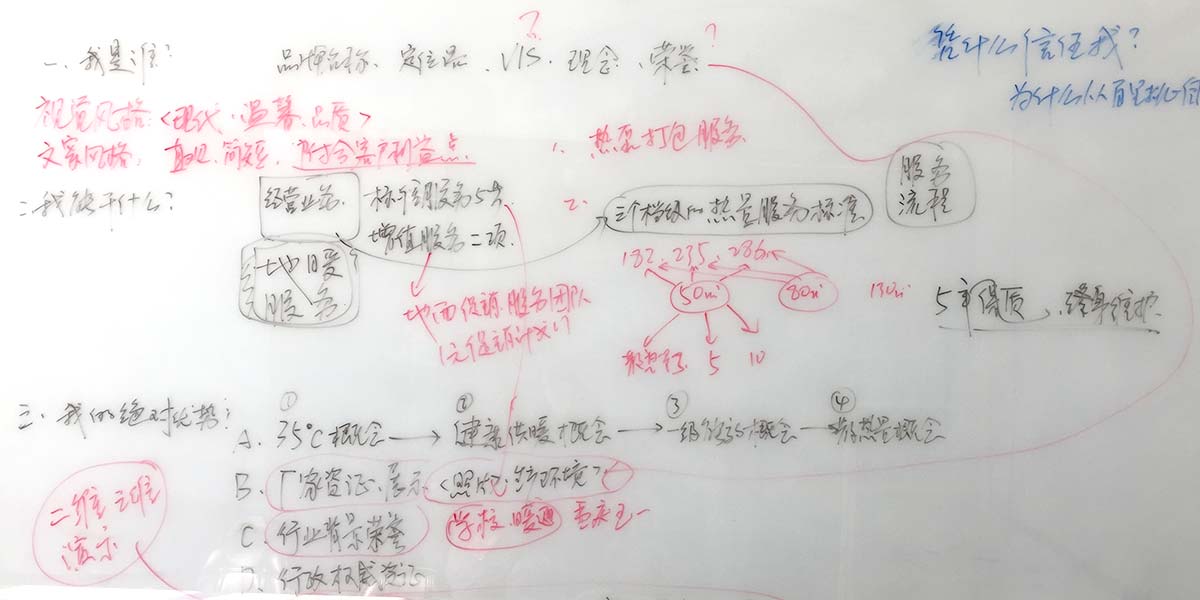 一、我是谁? 品牌名称、定位、VIS、理念、荣誉 ?
凭什么信任我?
为什么从百里挑一
视觉风格:<现代、温馨、品质>
文案风格: 直观、简短、符合客户利益点
1、热泵打包服务
服务
流程
二、我能干什么?
经营业务 标准服务5步
增值服务二项
2、三个档级的热量服务标准
土地暖?
服务
182 235 286
50㎡ 80㎡ 130㎡
5年保质、终身维护
地面促销服务团队
1元促销计划!?
5 10
三、我的绝对优势:
A、① 35℃概念 → ② 健康供暖概念 → ③ 一级能效概念 → ④ 散热量概念
B、厂家资证、展示 <照片、生产环境>
C、行业背景荣誉 学校、暖通
D、行政权威资证
二维三维
演示